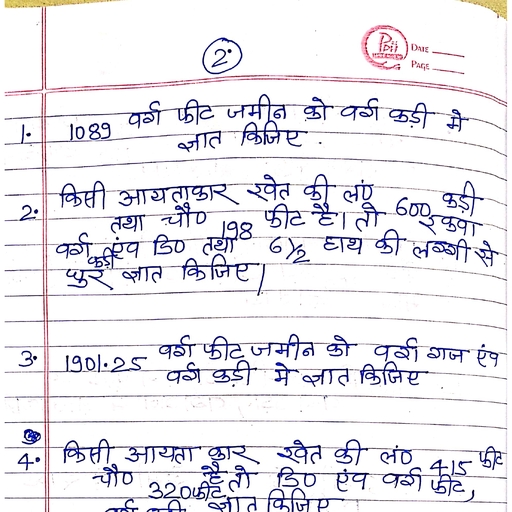 2.
DATE
PAGE
1. 1089 वर्ग फीट जमीन को वर्ग कड़ी मे
ज्ञात किजिए .
2. किसी आयताकार खेत की लं० 600 कड़ी
तथा चौ० 198 फीट है। तो रकवा
वर्ग कड़ी एंव डि० तथा 6 1/2 हाथ की लग्गी से
धुर ज्ञात किजिए।
3. 1901.25 वर्ग फीट जमीन को वर्ग गज एंव
वर्ग कड़ी मे ज्ञात किजिए
4. किसी आयता कार खेत की लं० 415 फीट
चौ० 320फीट है तो डि० एंव वर्ग फीट,
वर्ग कड़ी ज्ञात किजिए